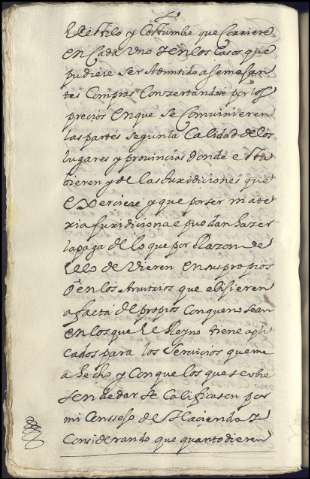 el estilo y costumbre que se tubiere
en Cada uno de en los Casos que
pudiere Ser Admitido a semejan
tes Compras Conzertandose por los
precios en que Se Combinieren
las partes Segun la Calidad de los
lugares y provincias donde estu
bieren y de las Jurisdiciones que
exercieren y que por ser materia
Jurisdicional puedan hazer
la paga de lo que por Razon de
ello devieren en sus propios
o en los Arvitrios que elixieren
a falta de propios Con que no Sean
en los que el Reyno tiene apli
cados para los Servicios que me
a hecho y Con que los que se obie
sen de dar Se Calificasen por
mi Conssejo de Hacienda Y
Considerando que quanto dieren